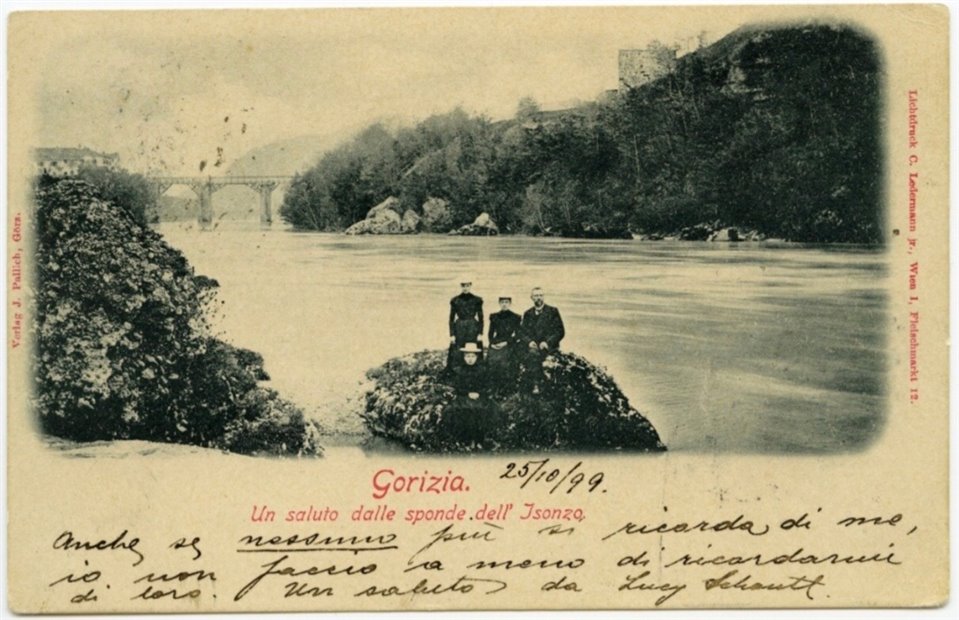 Verlag J. Pallich, Görz.
Lichtdruck C. Ledermann jr., Wien I, Fleischmarkt 12.
Gorizia. 25/10/99.
Un saluto dalle sponde dell' Isonzo.
Anche se nessuno più si ricorda di me,
io non faccio a meno di ricordarmi
di loro. Un saluto da Lucy